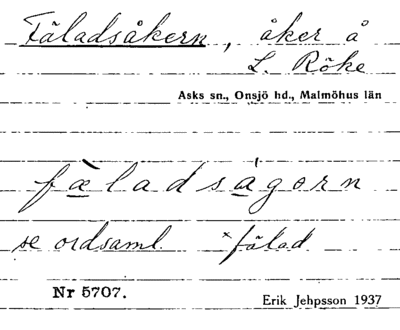 Fäladsåkern, åker å
L. Röke
Asks sn., Onsjö hd., Malmöhus län
fæ̀ladságorn
se ordsaml. ˣfälad
Nr 5707.
Erik Jehpsson 1937